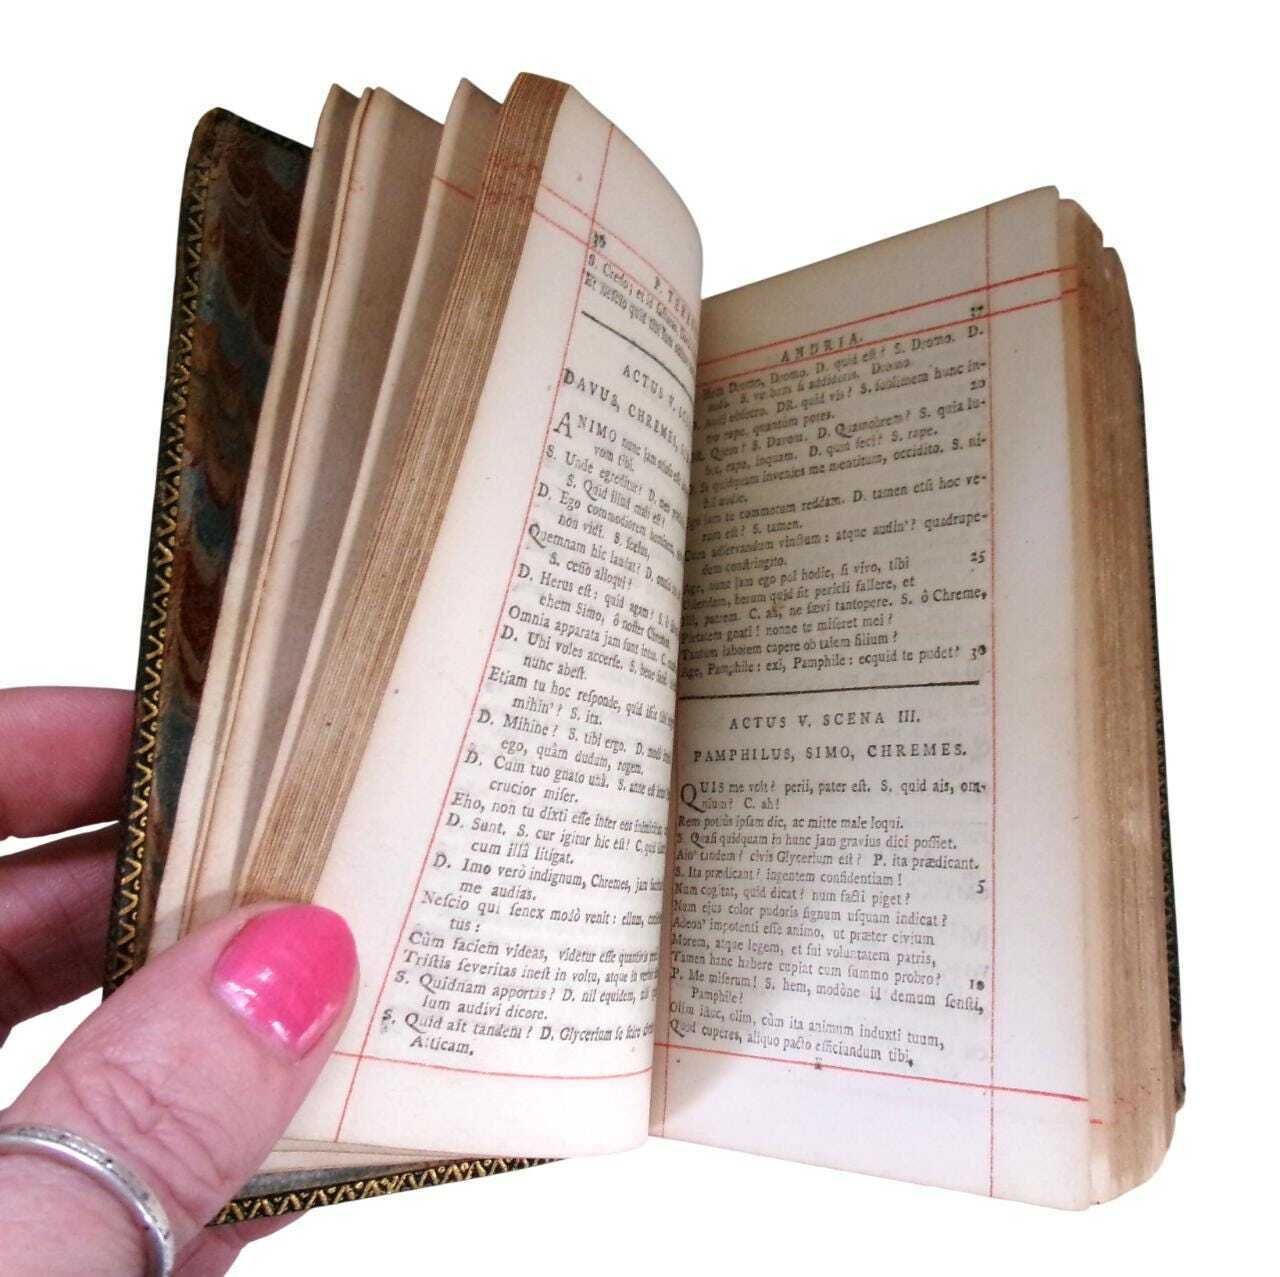 36
P. TEREN
S. Credo; et id
Et nescio quid
ACTUS V. SCE
DAVUS, CHREMES,
ANIMO nunc jam
vom tibi.
S. Unde egreditur? D. meo
S. Quid illud mali est?
D. Ego commodiorem hominem,
non vidi. S. scelus,
Quemnam hic laudat? D. omnis
S. cesso alloqui?
D. Herus est: quid agam? S. ô
ehem Simo, ô noster Chreme
Omnia apparata jam sunt intus. C.
D. Ubi voles accerse. S. bene
nunc abest.
Etiam tu hoc responde, quid istic tibi
mihin'? S. ita.
D. Mihine? S. tibi ergo. D. modò
ego, quàm dudum, rogem.
D. Cum tuo gnato unà. S. anne est
crucior miser.
Eho, non tu dixti esse inter eos inimicitias,
D. Sunt. S. cur igitur hic est? C. quid
cum illâ litigat.
D. Imo verò indignum, Chremes, jam
me audias.
Nescio qui senex modò venit: ellum,
tus:
Cùm faciem videas, videtur esse quantivis
Tristis severitas inest in voltu, atque in
S. Quidnam apportas? D. nil equidem, nisi
lum audivi dicere.
S. Quid ait tandem? D. Glycerium se scire
Atticam.
37
ANDRIA.
Dromo, Dromo. D. quid est? S. Dromo. D.
S. verbum si addideris. Dromo
Audi obsecro. DR. quid vis? S. sublimem hunc in- 20
tro rape, quantum potes.
Quem? S. Davom. D. Quamobrem? S. quia lu-
bet, rape, inquam. D. quid feci? S. rape.
D. Si quidquam invenies me mentitum, occidito. S. ni-
hil audio.
Ego jam te commotum reddam. D. tamen etsi hoc ve-
rum est? S. tamen.
Cura adservandum vinctum: atque audin'? quadrupe-
dem constringito. 25
Age, nunc jam ego pol hodie, si vivo, tibi
Ostendam, herum quid sit pericli fallere, et
Illi, patrem. C. ah, ne sævi tantopere. S. ô Chreme,
Pietatem gnati! nonne te miseret mei?
Tantum laborem capere ob talem filium?
Age, Pamphile: exi, Pamphile: ecquid te pudet? 30
ACTUS V. SCENA III.
PAMPHILUS, SIMO, CHREMES.
QUIS me volt? perii, pater est. S. quid ais, om-
nium? C. ah!
Rem potius ipsam dic, ac mitte male loqui.
S. Quasi quidquam in hunc jam gravius dici possiet.
Ain' tandem? civis Glycerium est? P. ita prædicant.
S. Ita prædicant? ingentem confidentiam! 5
Num cogitat, quid dicat? num facti piget?
Num ejus color pudoris signum usquam indicat?
Adeon' impotenti esse animo, ut præter civium
Morem, atque legem, et sui voluntatem patris,
Tamen hanc habere cupiat cum summo probro? 10
P. Me miserum! S. hem, modòne id demum sensti,
Pamphile?
Olim istuc, olim, cùm ita animum induxti tuum,
Quod cuperes, aliquo pacto efficiundum tibi,